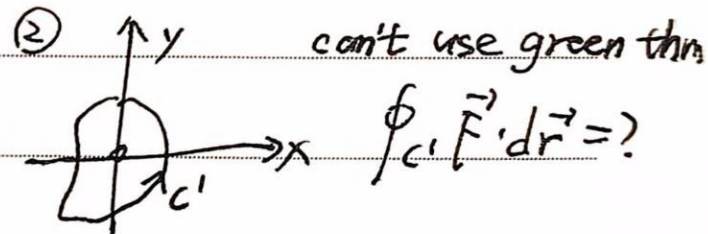 ② y can't use green thm
x ∮C' F⃗·dr⃗ =?
C'